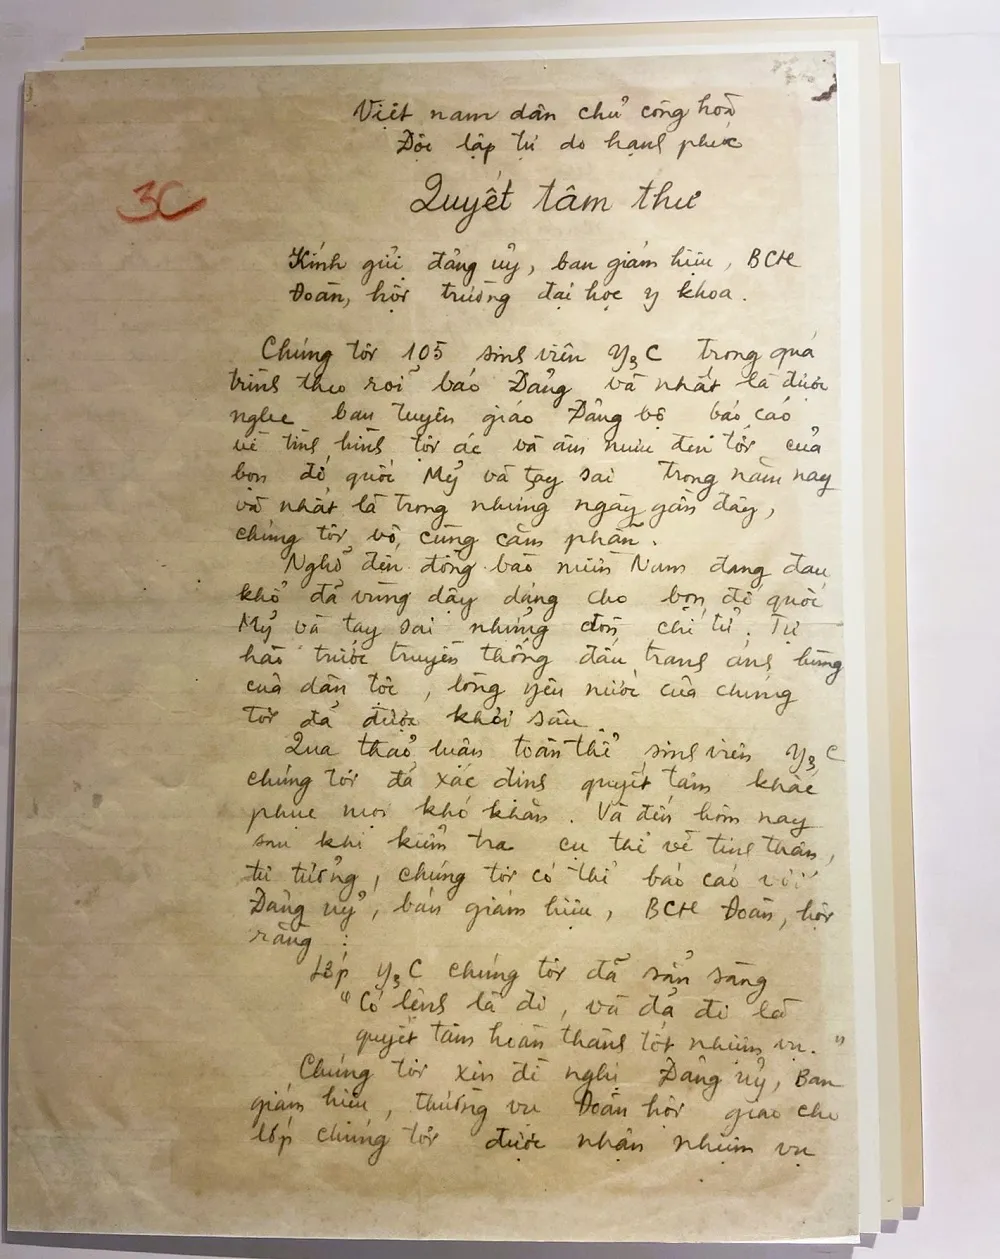 Việt nam dân chủ cộng hoà
Độc lập tự do hạnh phúc
3C
Quyết tâm thư
Kính gửi đảng uỷ, ban giám hiệu, BCH
Đoàn, hội trường đại học y khoa.
Chúng tôi 105 sinh viên Y₃C trong quá
trình theo rõi báo Đảng và nhất là được
nghe ban tuyên giáo Đảng bộ báo cáo
về tình hình tội ác và âm mưu đen tối của
bọn đế quốc Mỹ và tay sai trong năm nay
và nhất là trong những ngày gần đây,
chúng tôi vô cùng căm phẫn.
Nghĩ đến đồng bào miền Nam đang đau
khổ đã vùng dậy dáng cho bọn đế quốc
Mỹ và tay sai những đòn chí tử. Tự
hào trước truyền thống đấu tranh anh hùng
của dân tộc, lòng yêu nước của chúng
tôi đã được khơi sâu
Qua thảo luận toàn thể sinh viên Y₃C
chúng tôi đã xác định quyết tâm khắc
phục mọi khó khăn. Và đến hôm nay
sau khi kiểm tra cụ thể về tinh thần,
tư tưởng, chúng tôi có thể báo cáo với
Đảng uỷ, ban giám hiệu, BCH Đoàn, hội
rằng :
Lớp Y₃C chúng tôi đã sẵn sàng
"Có lệnh là đi, và đã đi là
quyết tâm hoàn thành tốt nhiệm vụ."
Chúng tôi xin đề nghị Đảng uỷ, Ban
giám hiệu, thường vụ Đoàn hội giao cho
lớp chúng tôi được nhận nhiệm vụ